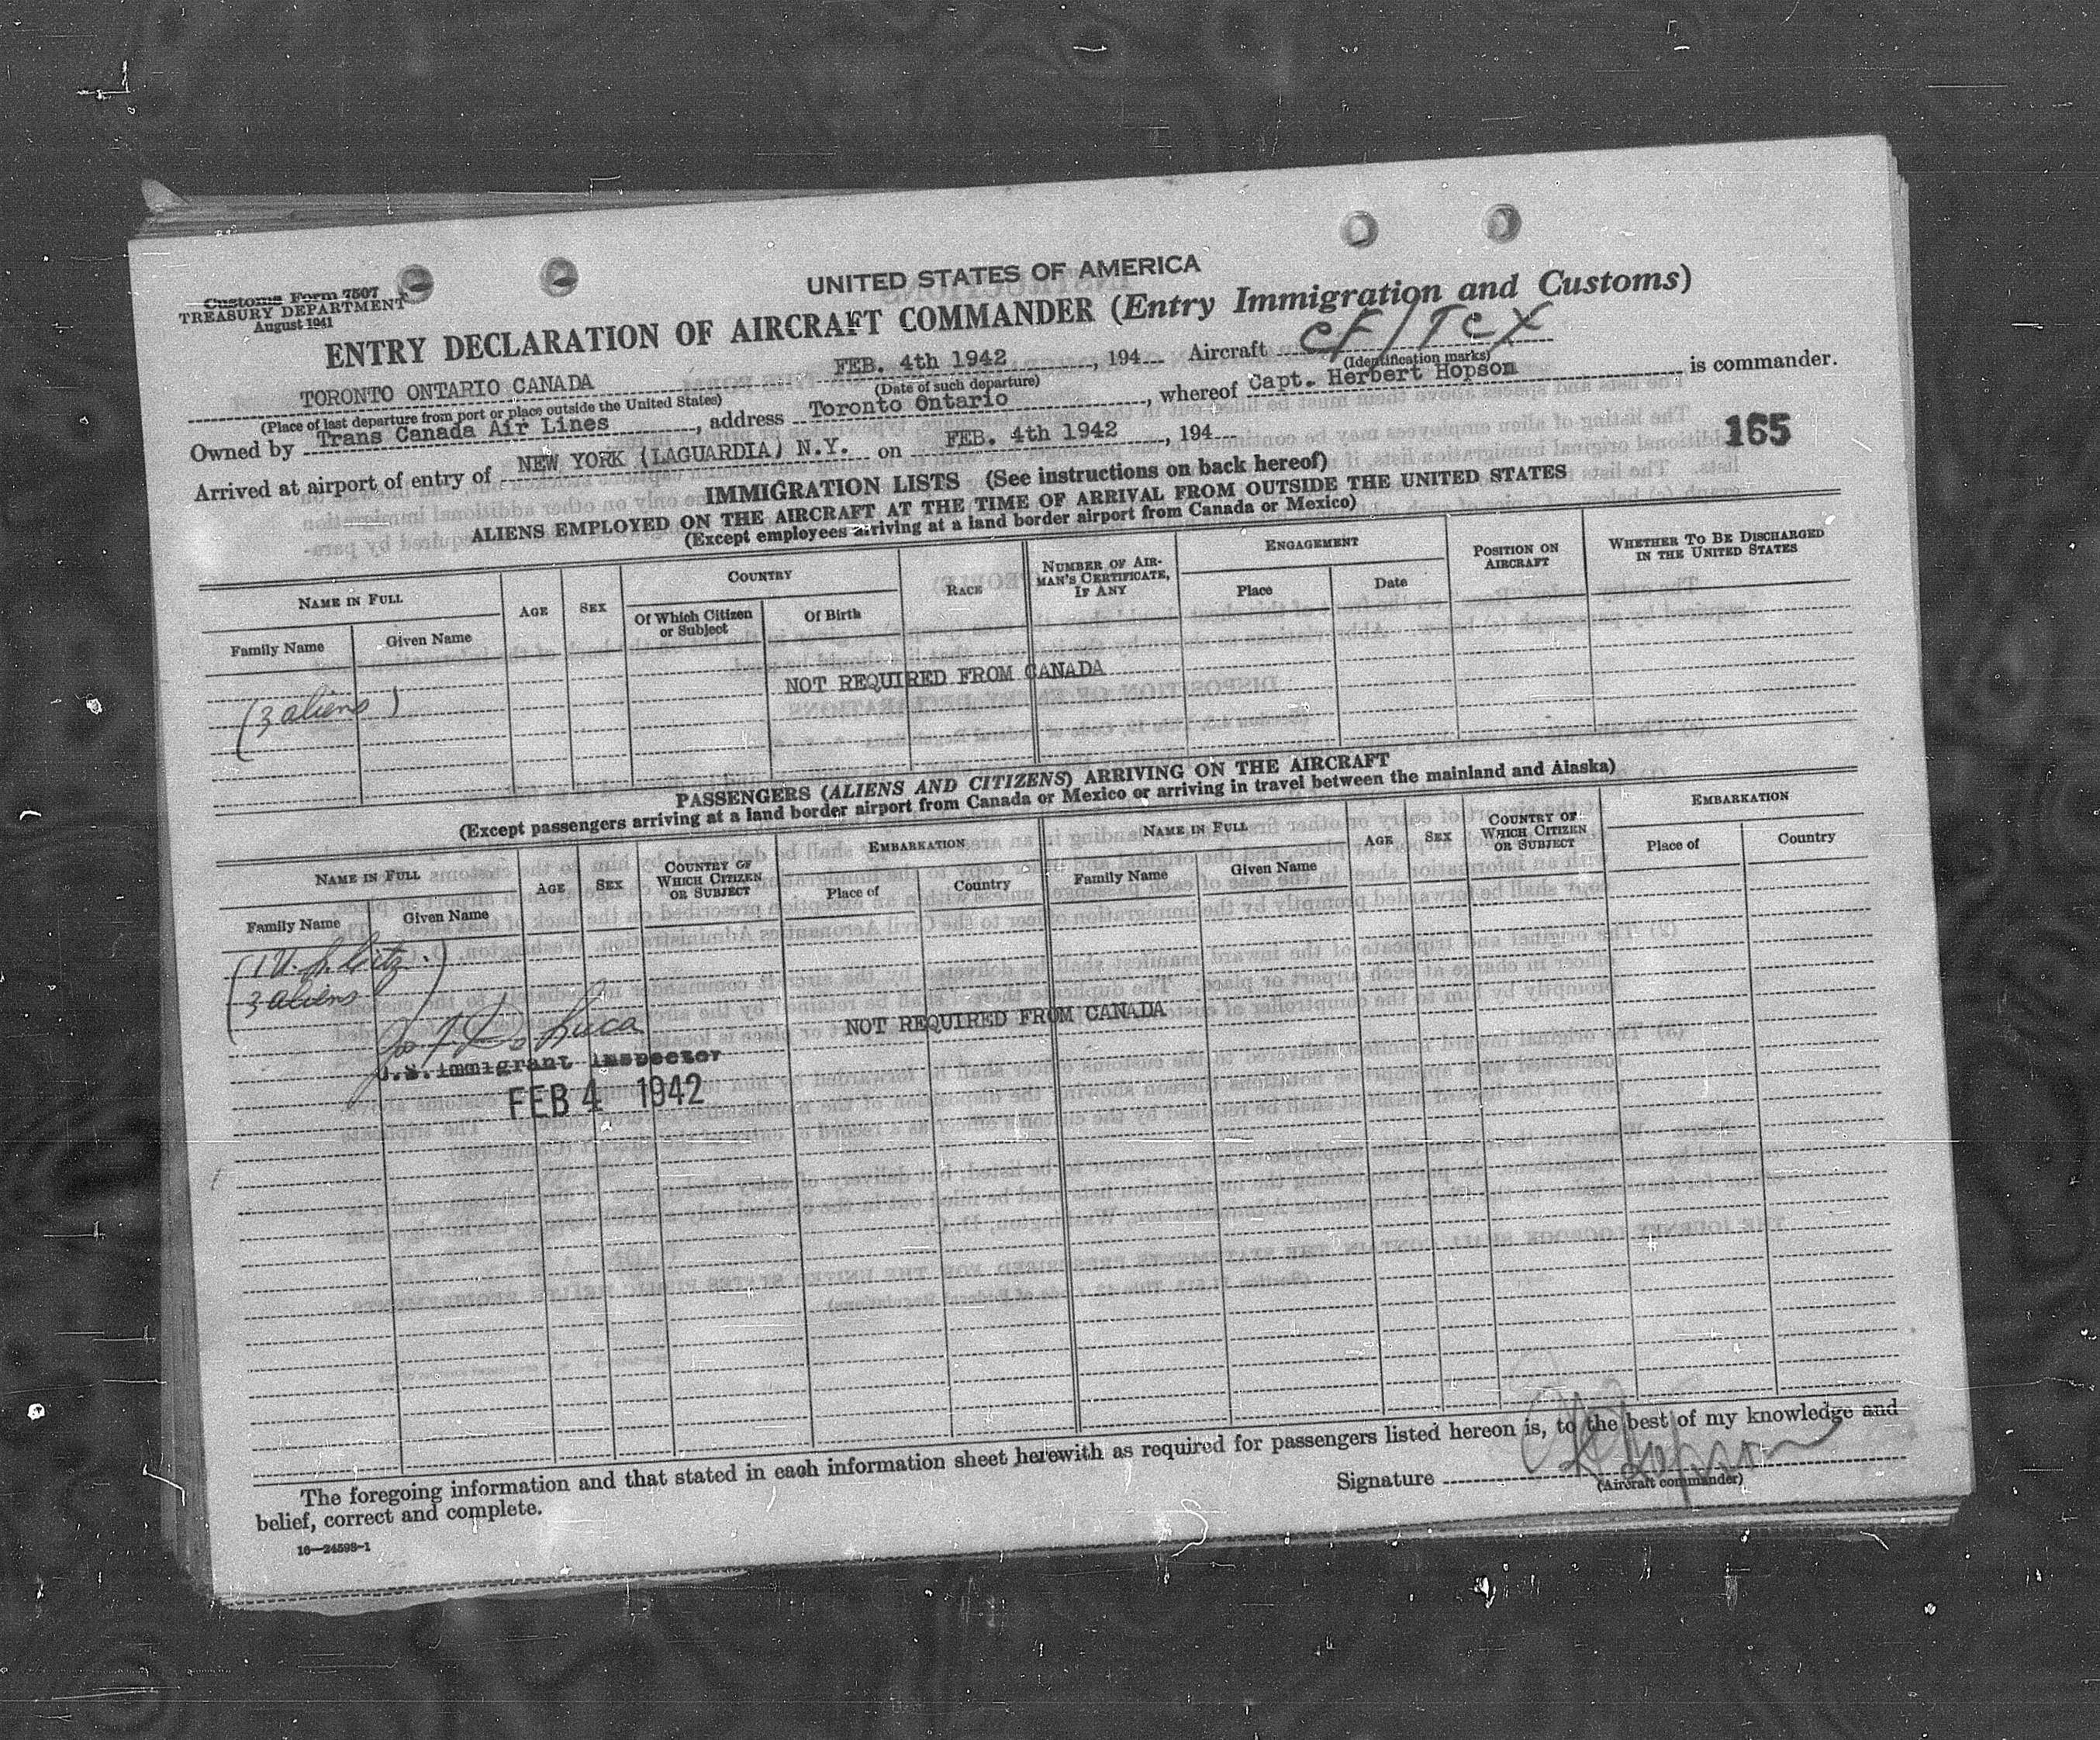 Customs Form 7507
TREASURY DEPARTMENT
August 1941
UNITED STATES OF AMERICA
ENTRY DECLARATION OF AIRCRAFT COMMANDER (Entry Immigration and Customs)
TORONTO ONTARIO CANADA FEB. 4th 1942, 194 Aircraft CF/TCX
(Place of last departure from port or place outside the United States) (Date of such departure) (Identification marks)
Owned by Trans Canada Air Lines, address Toronto Ontario, whereof Capt. Herbert Hopson is commander.
Arrived at airport of entry of NEW YORK (LAGUARDIA) N.Y. on FEB. 4th 1942, 194
165
IMMIGRATION LISTS (See instructions on back hereof)
ALIENS EMPLOYED ON THE AIRCRAFT AT THE TIME OF ARRIVAL FROM OUTSIDE THE UNITED STATES
(Except employees arriving at a land border airport from Canada or Mexico)
NAME IN FULL AGE SEX COUNTRY RACE NUMBER OF AIRMAN'S CERTIFICATE, IF ANY ENGAGEMENT POSITION ON AIRCRAFT WHETHER TO BE DISCHARGED IN THE UNITED STATES
Family Name Given Name Of Which Citizen or Subject Of Birth Place Date
NOT REQUIRED FROM CANADA
(3 aliens)
PASSENGERS (ALIENS AND CITIZENS) ARRIVING ON THE AIRCRAFT
(Except passengers arriving at a land border airport from Canada or Mexico or arriving in travel between the mainland and Alaska)
NAME IN FULL AGE SEX COUNTRY OF WHICH CITIZEN OR SUBJECT EMBARKATION NAME IN FULL AGE SEX COUNTRY OF WHICH CITIZEN OR SUBJECT EMBARKATION
Family Name Given Name Place of Country Family Name Given Name Place of Country
(1 U.S. Citz.
3 aliens)
NOT REQUIRED FROM CANADA
U.S. Immigrant Inspector
FEB 4 1942
The foregoing information and that stated in each information sheet herewith as required for passengers listed hereon is, to the best of my knowledge and
belief, correct and complete.
Signature Hopson
(Aircraft commander)
16—24598-1